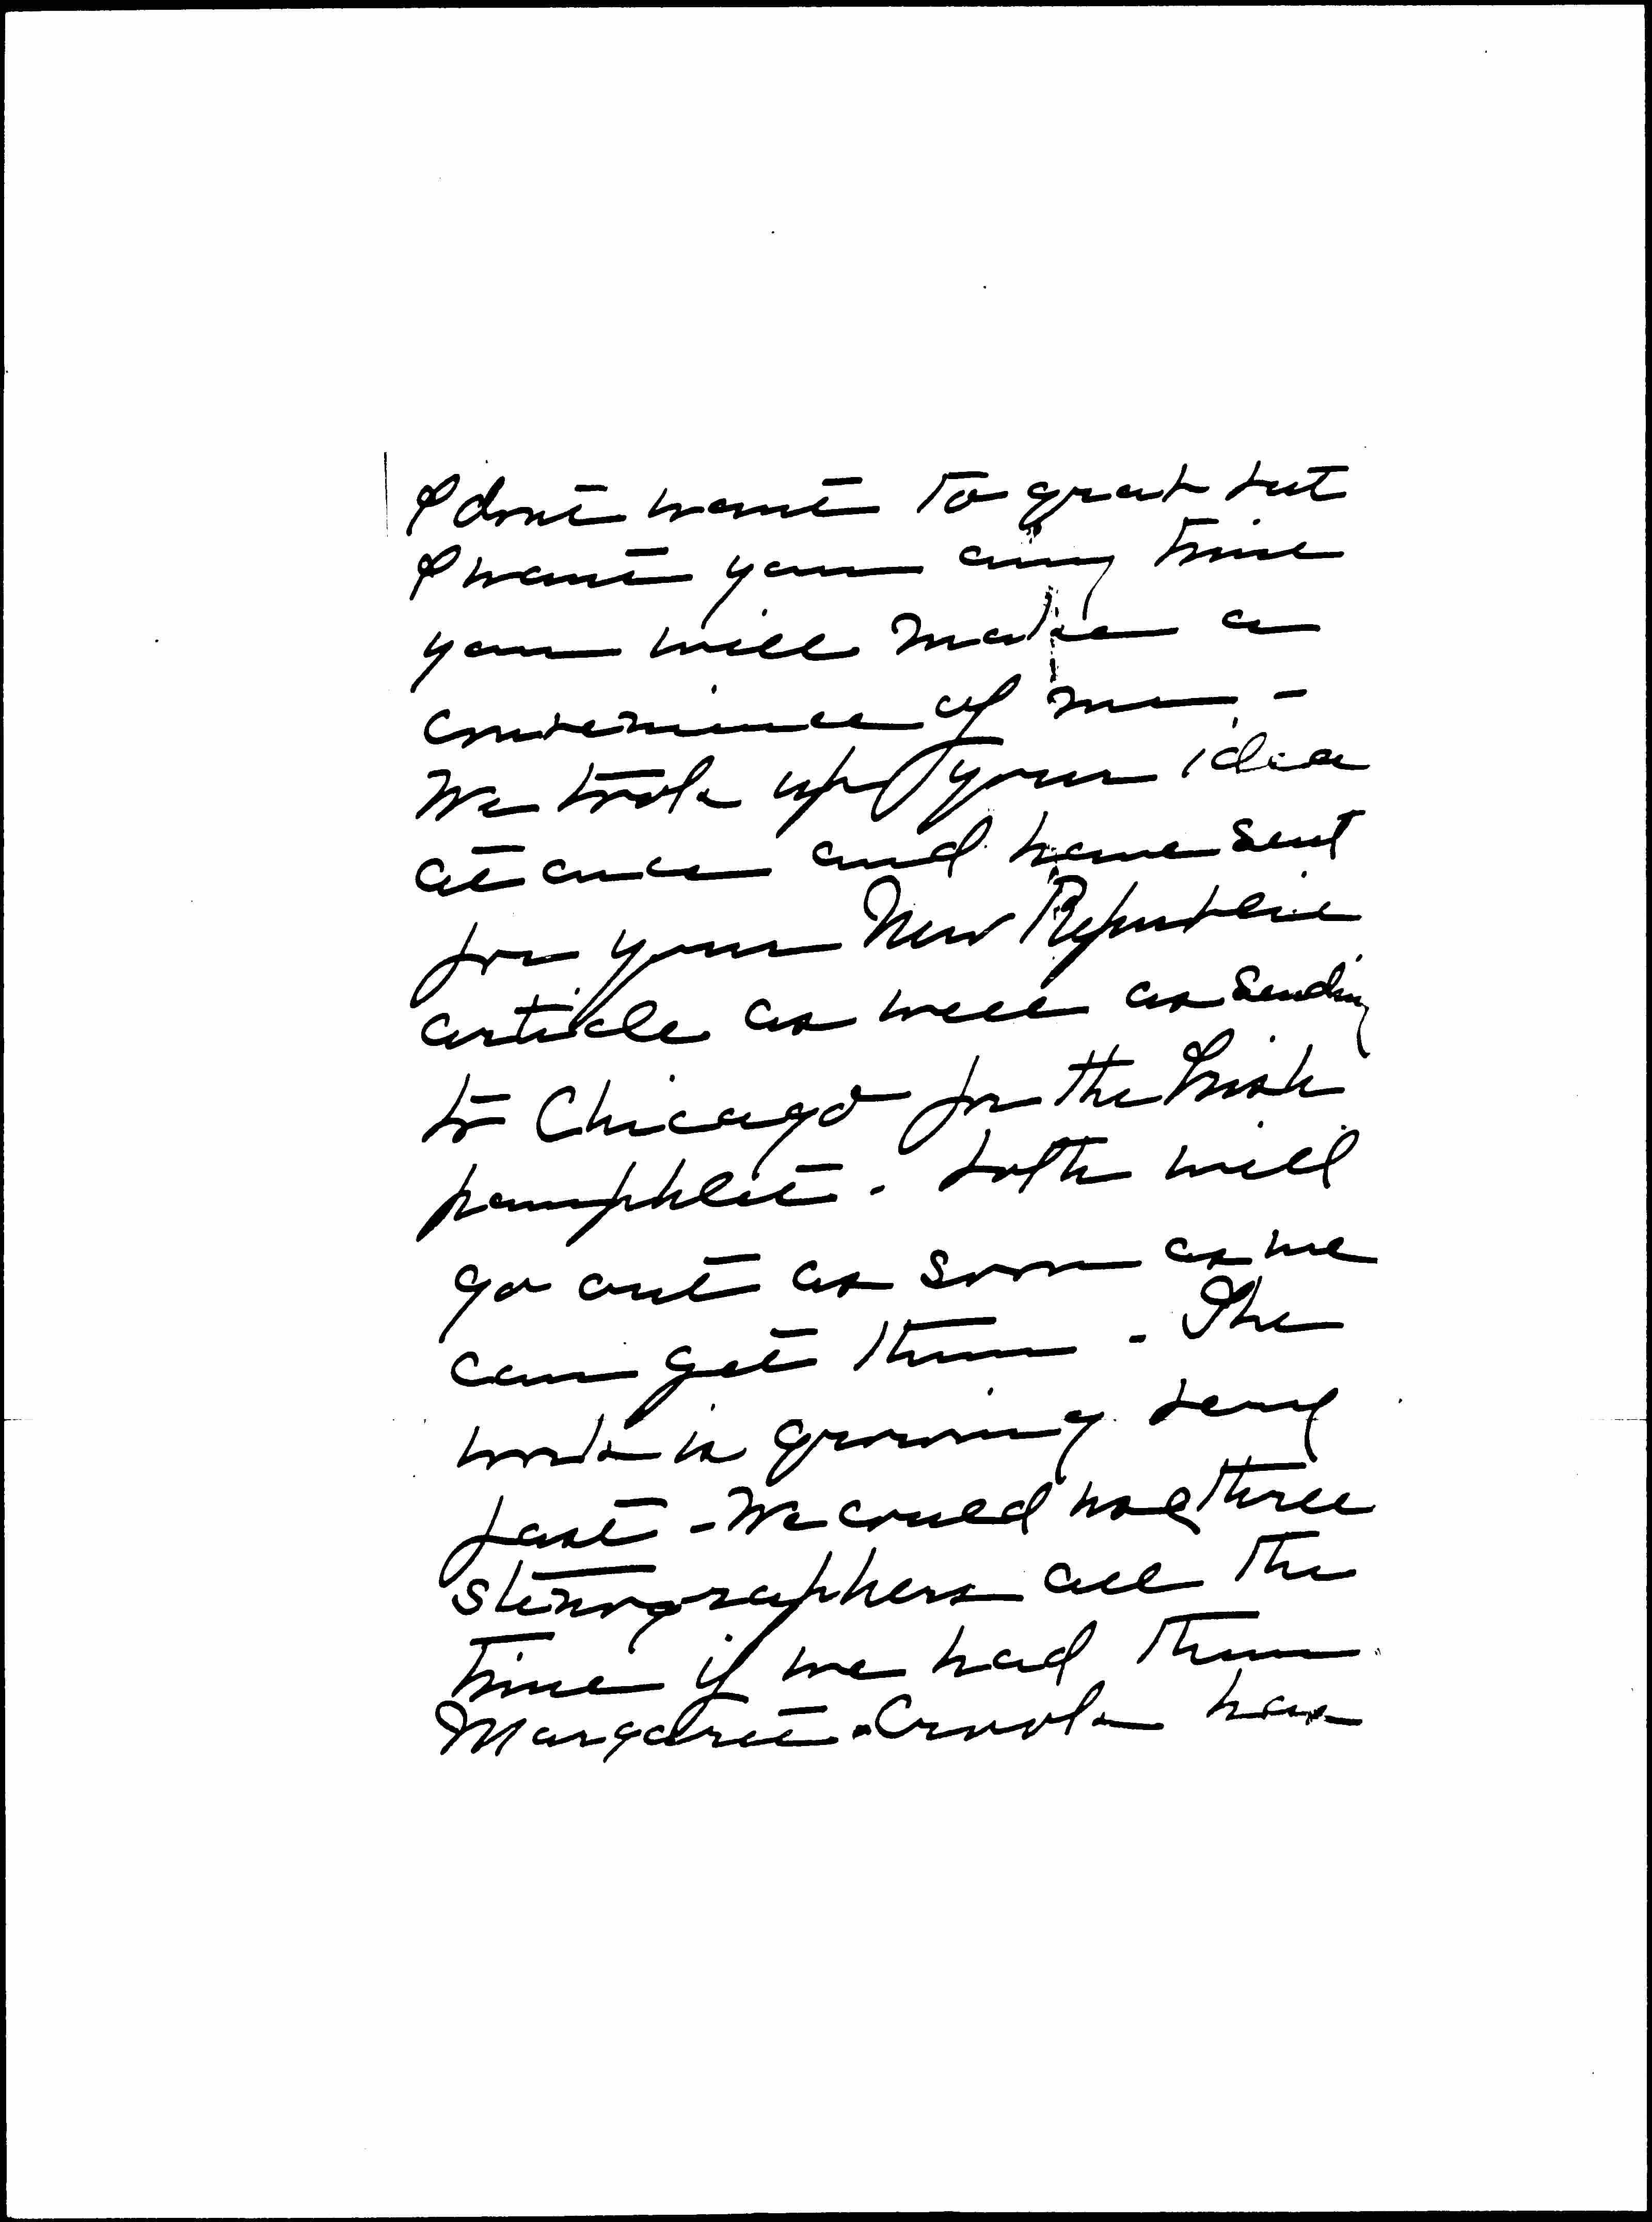 I dont want to grab but
I want you any time
you will make a
convenience of me -
We took up your idea
at once and have sent
for your New Republic
article as well as sending
to Chicago for the Irish
pamphlet. both will
go out as soon as we
can get them - The
work is growing very
fast - We could use three
stenographers all the
time if we had them
Margaret has